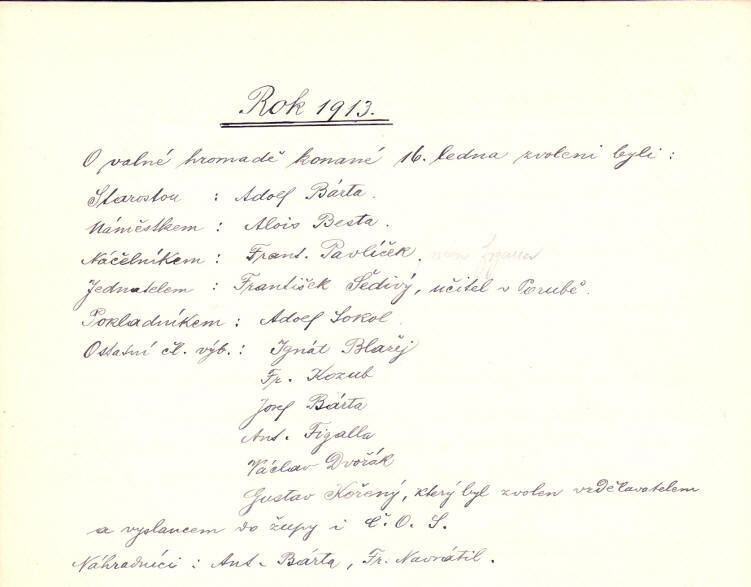 Rok 1913.
O valné hromadě konané 16. ledna zvoleni byli :
Starostou : Adolf Bárta.
Náměstkem : Alois Besta.
Náčelníkem : Frant. Pavlíček.
Jednatelem : František Šedivý, učitel v Porubě.
Pokladníkem : Adolf Sokol.
Ostatní čl. výb. : Ignát Blažej
Fr. Kozub
Josef Bárta
Ant. Figalla
Václav Dvořák
Gustav Kořený, který byl zvolen vzdělavatelem
a vyslancem do župy i Č. O. S.
Náhradníci : Ant. Bárta, Fr. Navrátil.